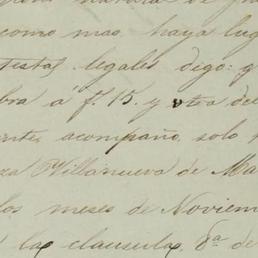 como mas haya lug
testas legales digo: y
bra á f. 15. y otra de
ente, acompaño, solo
Villanueva de Ma
los meses de Noviem
las clausula 8a de